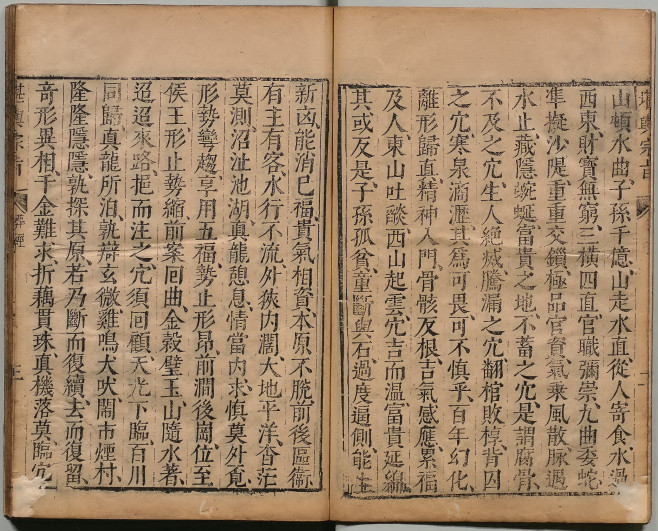 堪輿宗旨
山頓水曲、子孫千億、山走水直、從人寄食、水過
西東、財寶無窮、三橫四直、官職彌崇、九曲委蛇、
準擬沙隄、重重交鎖、極品官資、氣乘風散、脉遇
水止、藏隱蜿蜒、富貴之地、不蓄之穴、是謂腐骨、
不及之穴、生人絕滅、騰漏之穴、翻棺敗槨、背囚
之穴、寒泉滴瀝、其爲可畏、可不慎乎、百年幻化、
離形歸真、精神入門、骨骸反根、吉氣感應、累福
及人、東山吐燄、西山起雲、穴吉而溫、富貴延綿、
其或反是、子孫孤貧、童斷與石、過度逼側、能生
新凶、能消已福、貴氣相資、本原不脫、前後區衞、
有主有客、水行不流、外狹內闊、大地平洋、杳茫
莫測、沼沚池湖、真龍憩息、情當內求、慎莫外覓、
形勢彎趨、享用五福、勢止形昂、前澗後崗、位至
侯王、形止勢縮、前案囘曲、金穀璧玉、山隨水著、
迢迢來路、挹而注之、穴須囘顧、天光下臨、百川
同歸、真龍所泊、孰辯玄微、雞鳴犬吠、鬧市煙村、
隆隆隱隱、孰探其原、若乃斷而復續、去而復留、
奇形異相、千金難求、折藕貫珠、真機落莫、臨穴
堪輿宗旨
葬經
三